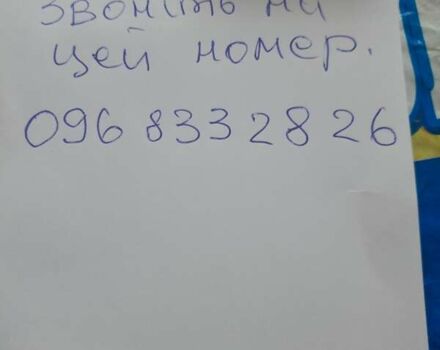 звоніть на
цей номер.
096 833 28 26